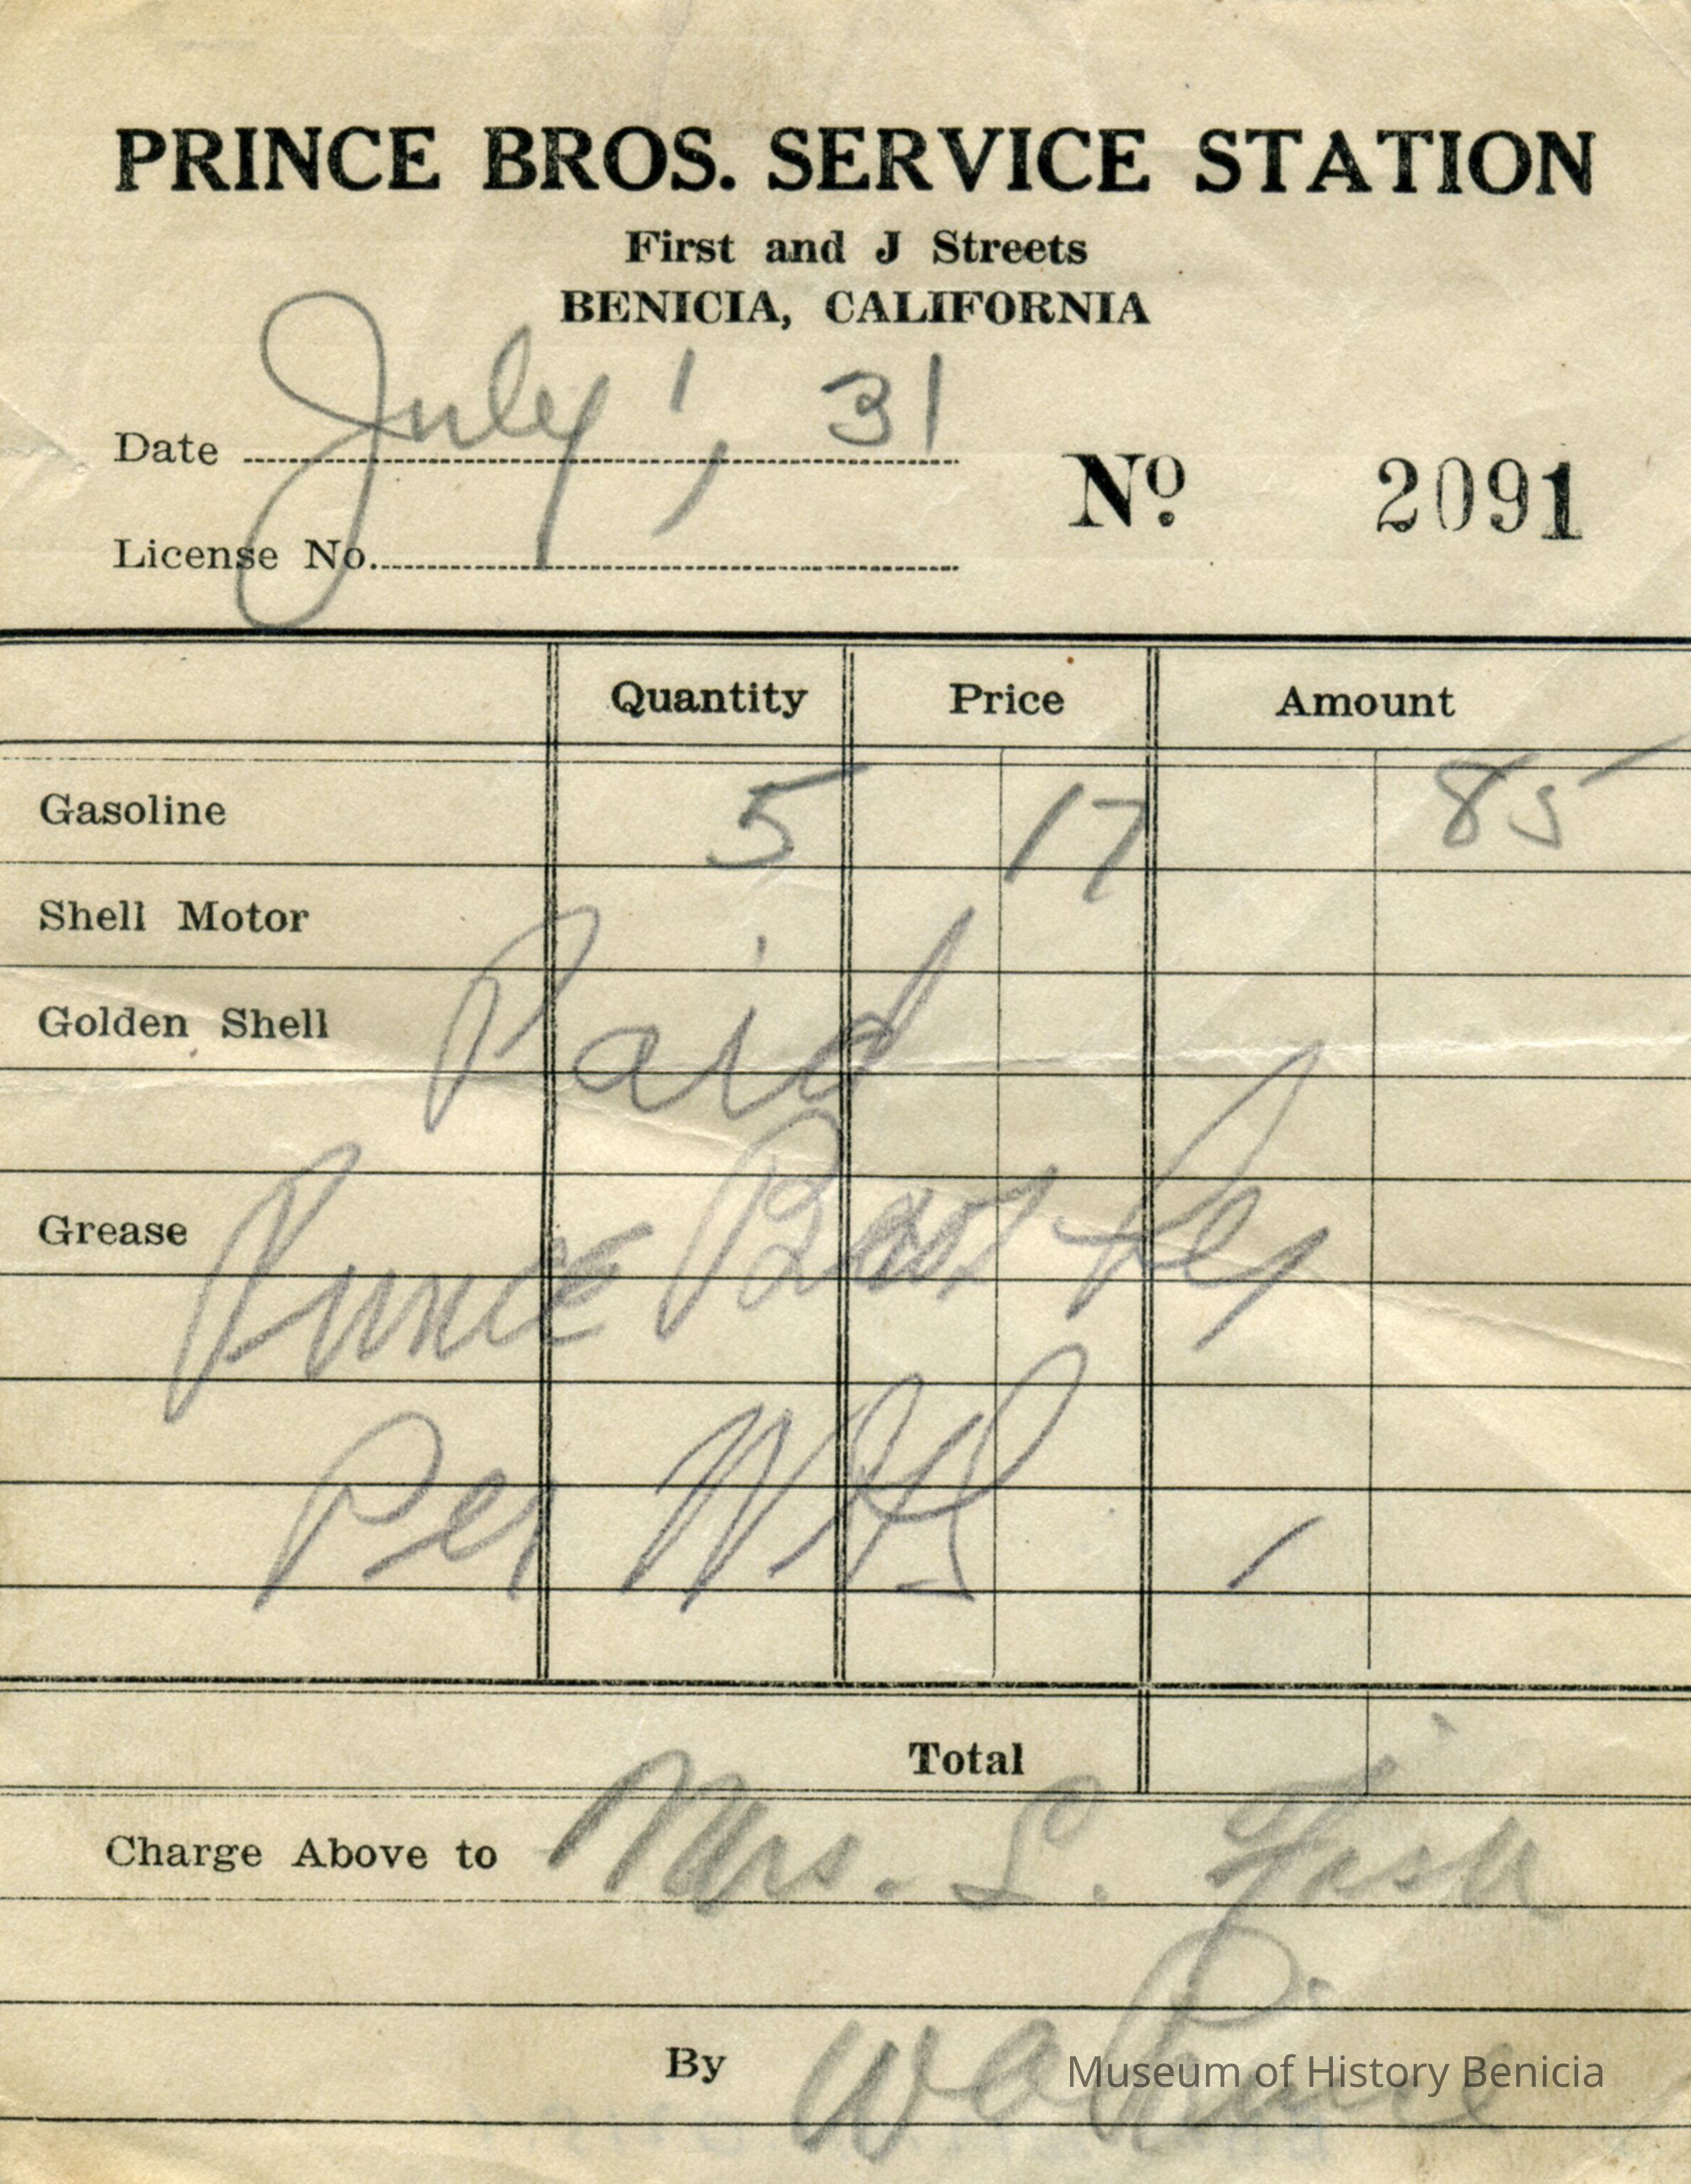 PRINCE BROS. SERVICE STATION
First and J Streets
BENICIA, CALIFORNIA
Date July 1, 31
License No.
No. 2091
Quantity Price Amount
Gasoline 5 17 85
Shell Motor
Golden Shell
Paid
Grease
Prince Bros
Per
Total
Charge Above to Mrs. L. Fish
By W A Prince
Museum of History Benicia